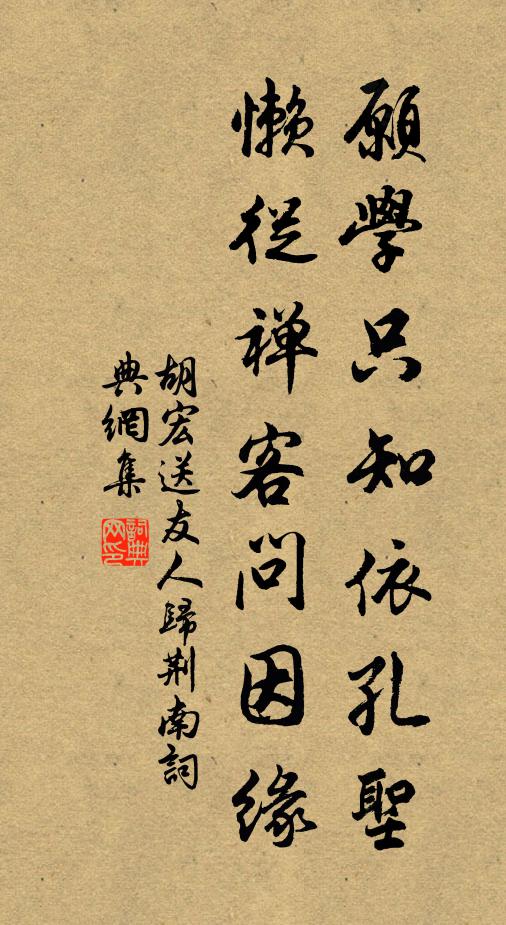 願學只知依孔聖
懶從禅客問因緣
胡宏送友人歸荆南詞
典網集
詞典
网印